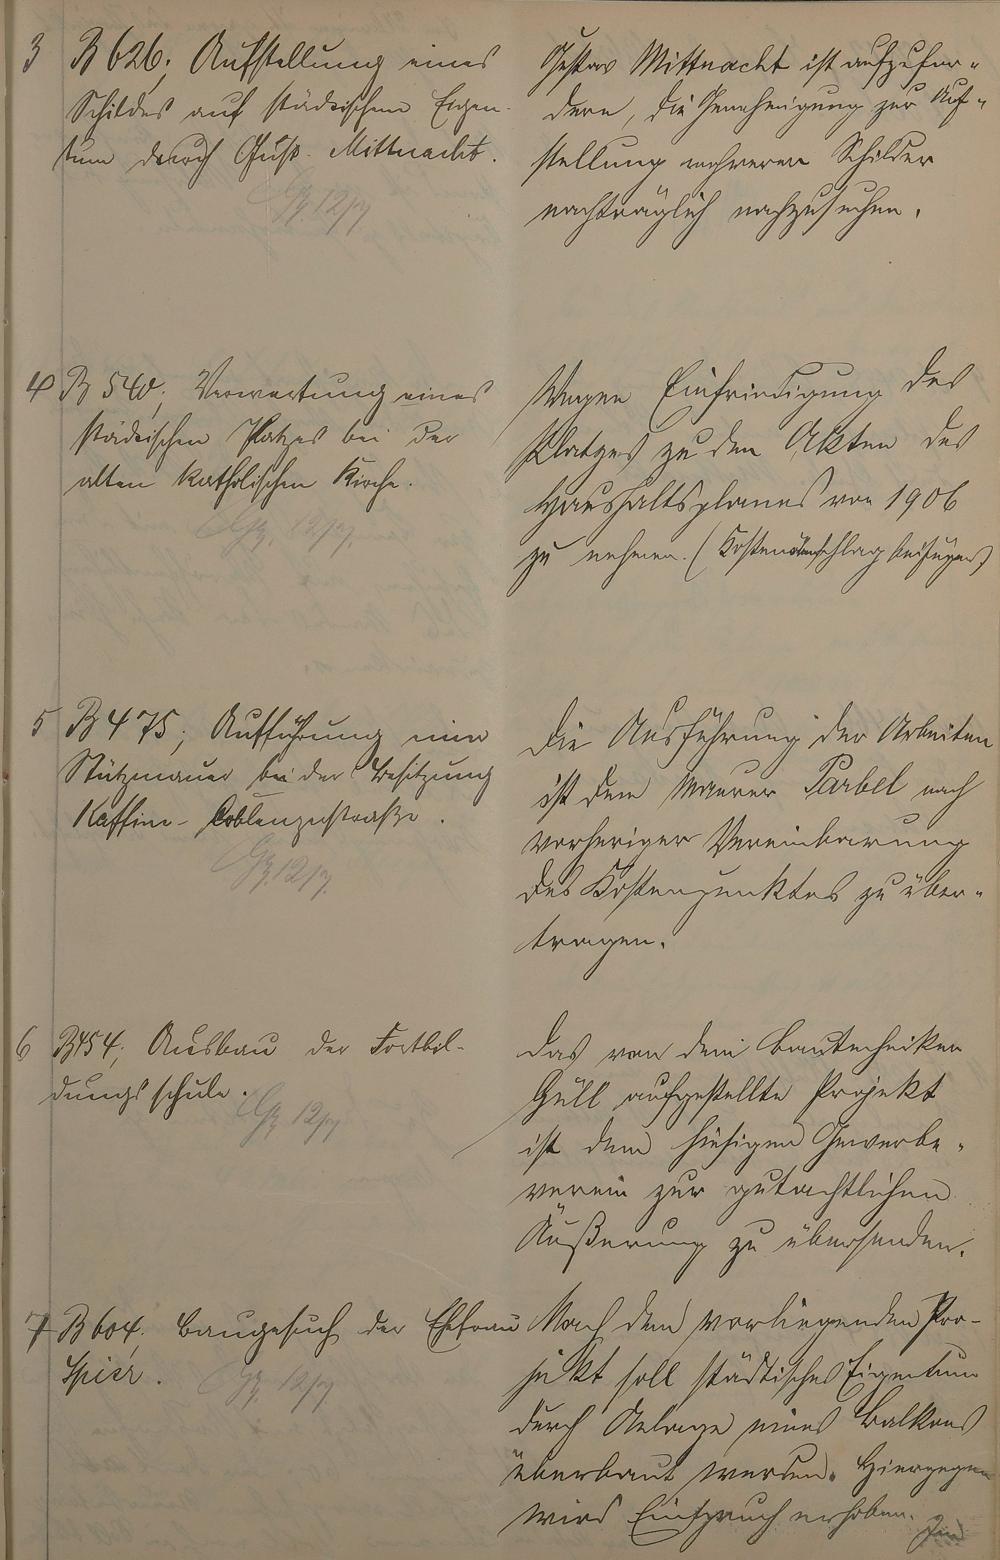 3 B 626; Aufstellung eines
Schildes auf städtischem Eigen-
tum durch Gust. Mittnacht.
Gz. 12/7
Gustav Mittnacht ist aufzufor-
dern, die Genehmigung zur Auf-
stellung mehrerer Schilder
nachträglich nachzusuchen.
4 B 540; Verwertung eines
städtischen Platzes bei der
alten katholischen Kirche.
Gz. 12/7.
Wegen Einfriedigung des
Platzes zu den Akten des
Haushaltsplanes von 1906
zu nehmen. (Kostenanschlag beifügen)
5 B 475; Aufführung einer
Stützmauer bei der Besitzung
Kaffine- Coblenzerstraße.
Gz. 12/7.
Die Ausführung der Arbeiten
ist dem Maurer Parbel nach
vorheriger Vereinbarung
des Kostenpunktes zu über-
tragen.
6 B 454; Ausbau der Fortbil-
dungsschule.
Gz. 12/7
Das von dem Bautechniker
Güll aufgestellte Projekt
ist dem hiesigen Gewerbe-
verein zur gutachtlichen
Äußerung zu übersenden.
7 B 604. Baugesuch der Ehefrau
Spier.
Gz. 12/7
Nach dem vorliegenden Pro-
jekt soll städtisches Eigentum
durch Anlage eines Balkons
überbaut werden. Hiergegen
wird Einspruch erhoben.